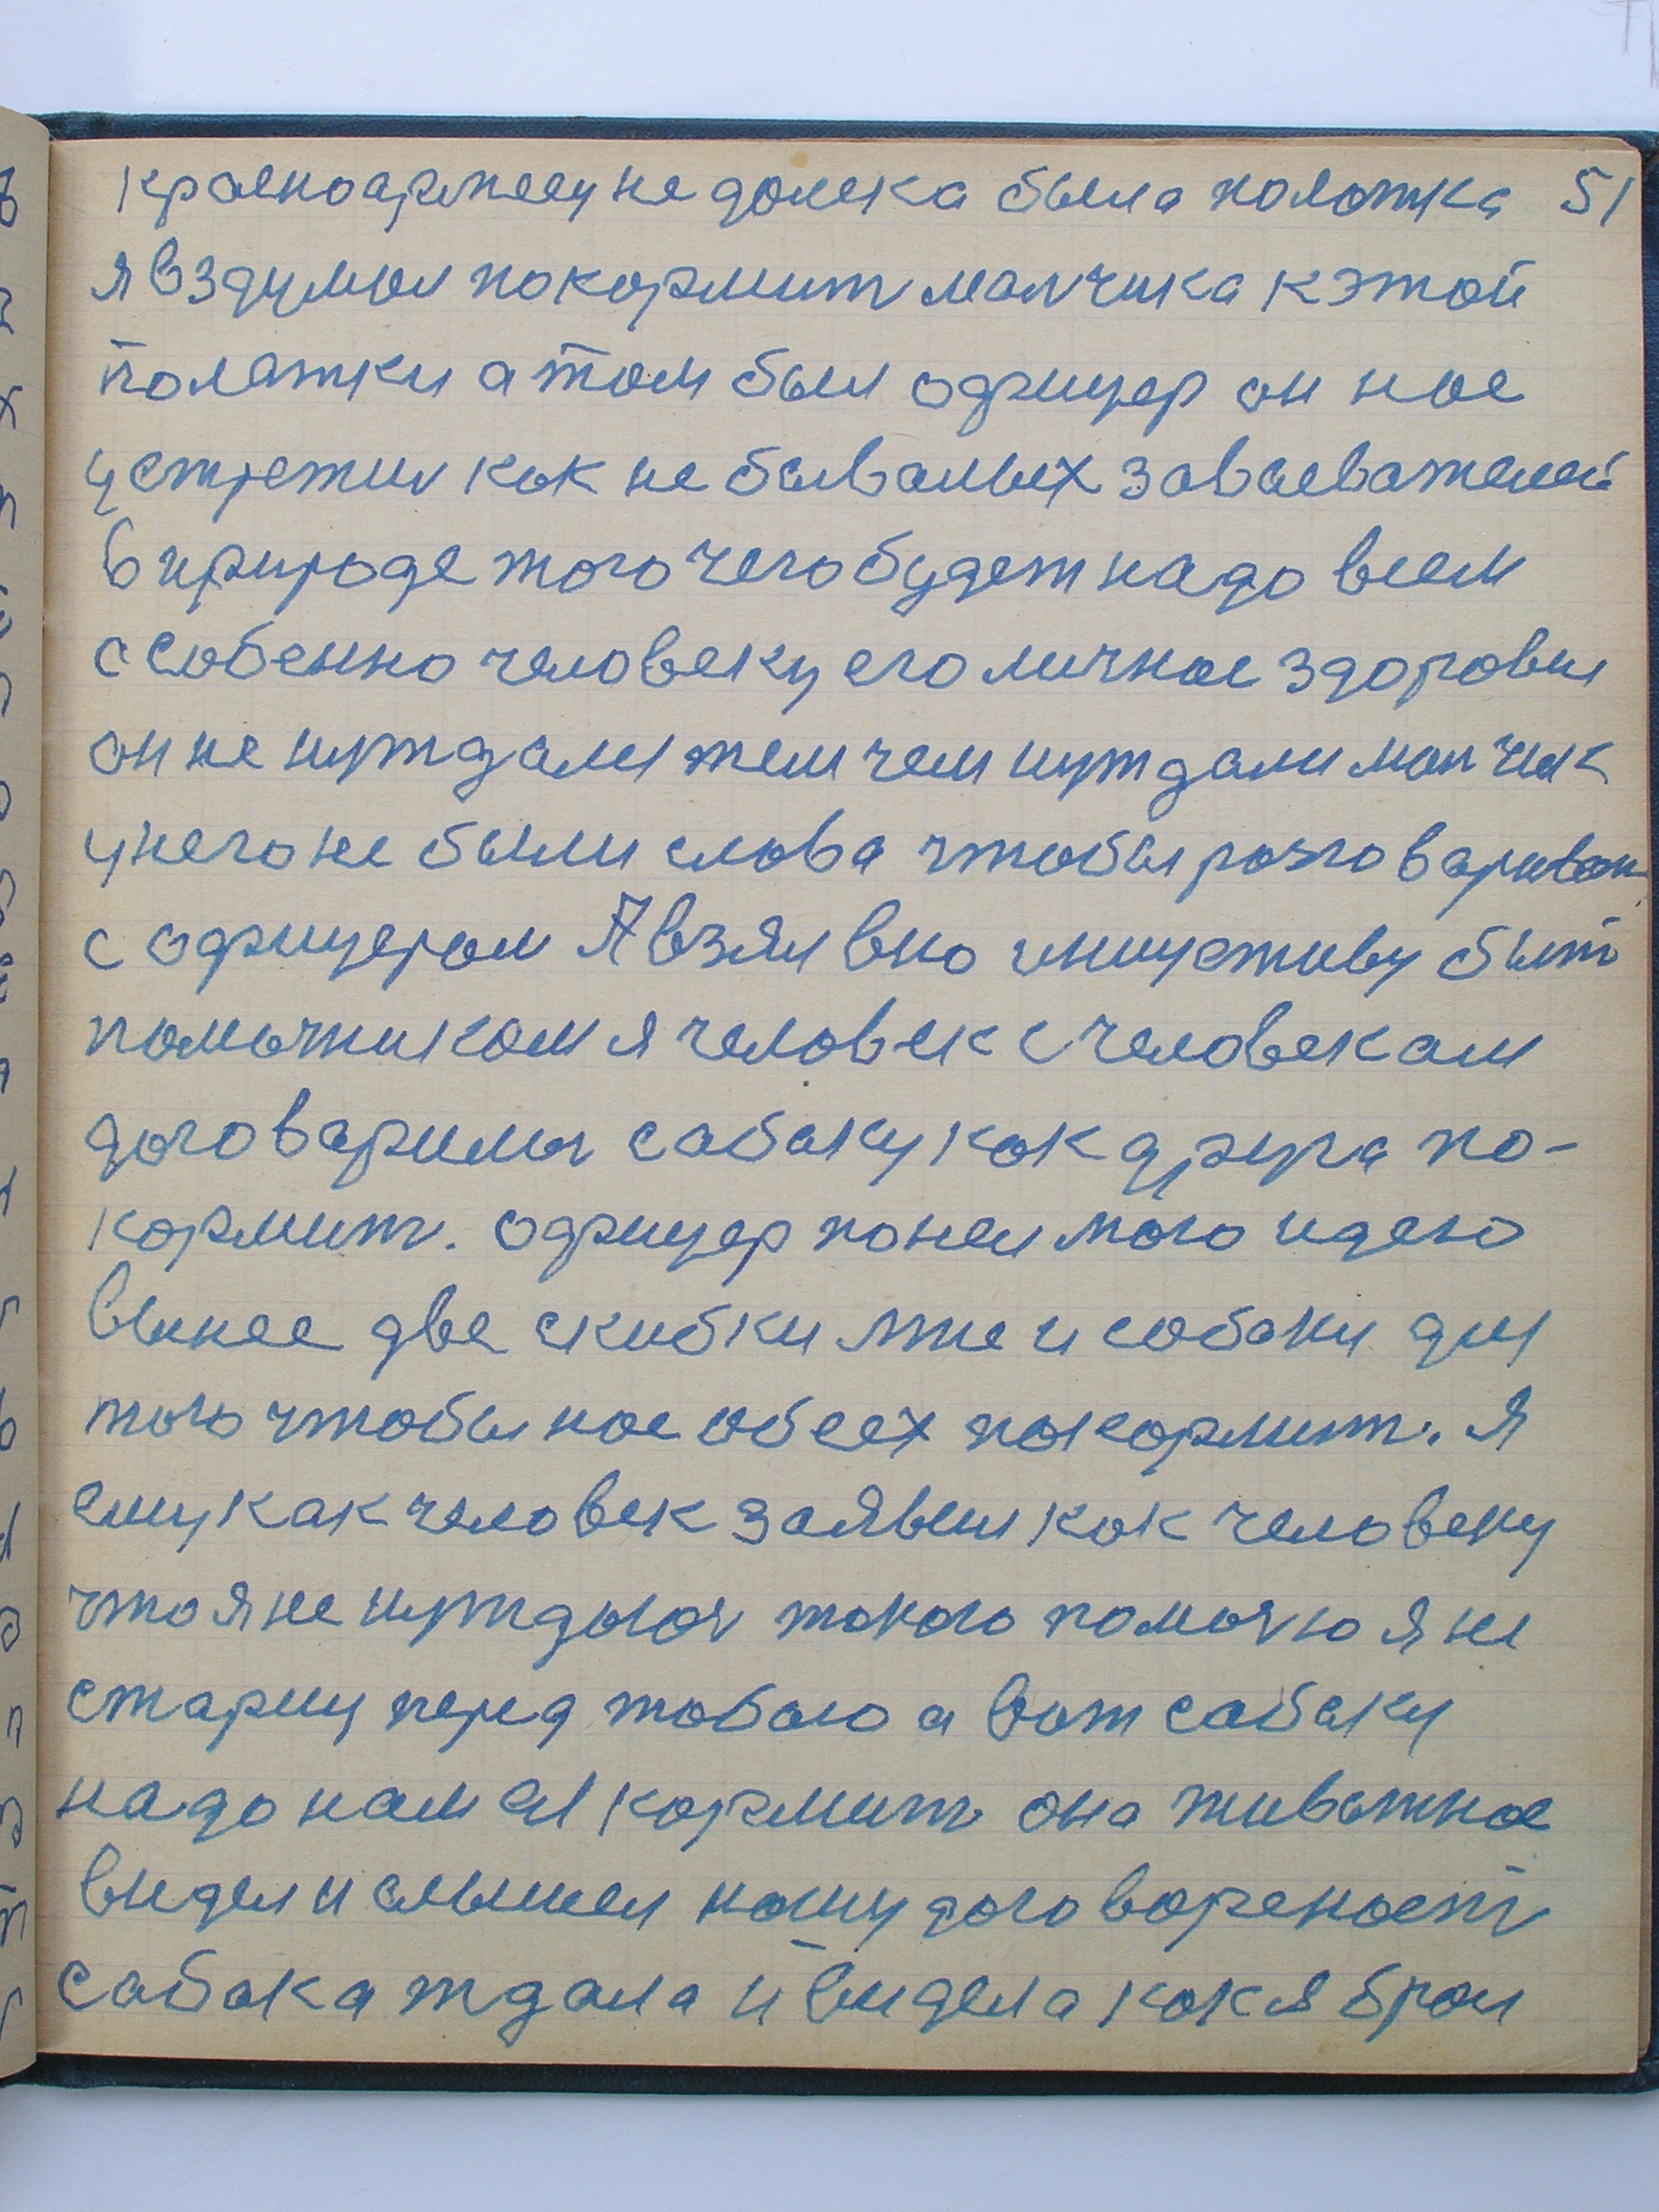 красноармеец не далека была палатка 51
я вздумал покормить малчика к этой
палатки а там был офицер он нас
устретил как не бывалых завоевателей
в природе того чего будет надо всем
особенно человеку его личное здоровья
он не нуждался тем чем нуждался малчик
у него не были слова чтобы разговариват
с офицером Я взял вно иницетиву быть
помочником я человек с человекам
договарился сабаку как друга по-
кормить. офицер понел мою идею
вынес две скибки мне и собаки для
того чтобы нас обеех покормить. Я
ему как человек заявил как человеку
что я не нуждаюсь такою помочю я не
старцу перед тобою а вот сабаку
надо нам ея кормить она животное
видел и слышел нашу договореность
сабака ждала и видела как я брал